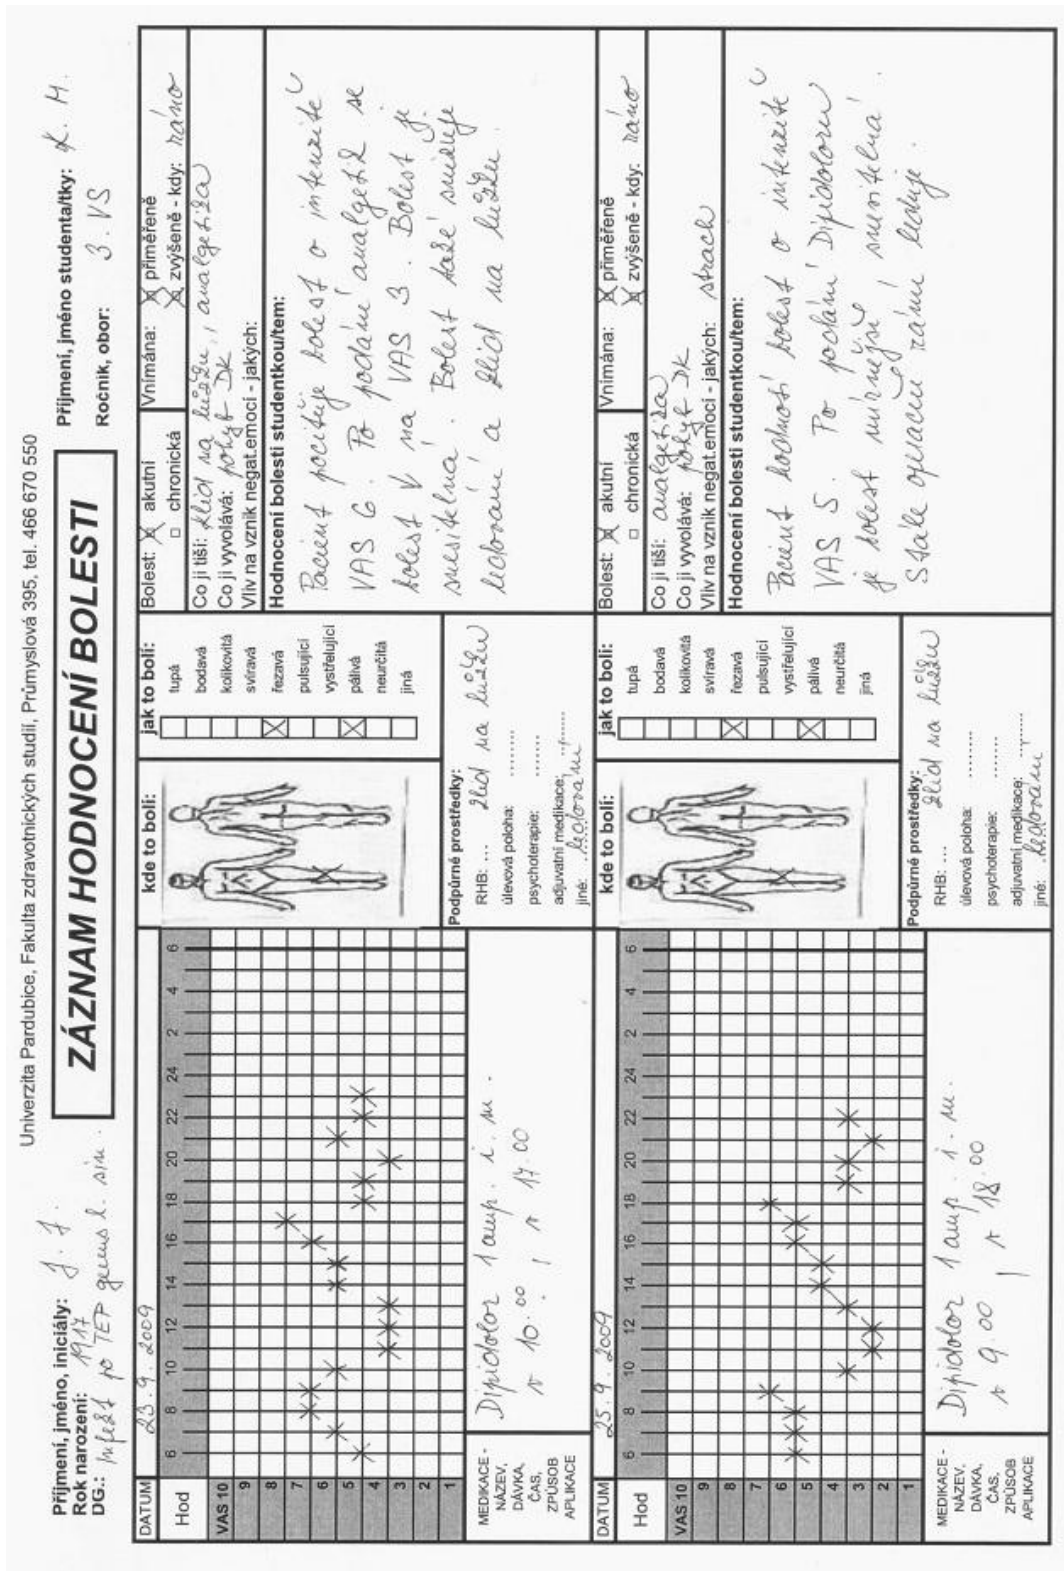 Univerzita Pardubice, Fakulta zdravotnických studií, Průmyslová 395, tel. 466 670 550
Příjmení, jméno, iniciály: J. J.
Rok narození: 1917
DG.: Infekt po TEP genus l. sin.
ZÁZNAM HODNOCENÍ BOLESTI
Příjmení, jméno studenta/tky: K. H.
Ročník, obor: 3. VS
DATUM 23. 9. 2009
Hod 6 8 10 12 14 16 18 20 22 24 2 4 6
VAS 10
9
8
7
6
5
4
3
2
1
MEDIKACE -
NÁZEV,
DÁVKA,
ČAS,
ZPŮSOB
APLIKACE
Dipidolor 1 amp. i. m.
v 10.00 , v 17.00
kde to bolí:
jak to bolí:
tupá
bodavá
kolikovitá
svíravá
řezavá
pulsující
vystřelující
pálivá
neurčitá
jiná
Podpůrné prostředky:
RHB: ... klid na lůžku
úlevová poloha: ........
psychoterapie: ........
adjuvatní medikace: ........
jiné: ledování
Bolest: akutní
chronická
Vnímána: přiměřeně
zvýšeně - kdy: ráno
Co ji tiší: klid na lůžku, analgetika
Co ji vyvolává: pohyb DK
Vliv na vznik negat.emocí - jakých:
Hodnocení bolesti studentkou/tem:
Pacient pociťuje bolest o intenzitě
VAS 6. Po podání analgetik se
bolest na VAS 3. Bolest je
snesitelná. Bolest také snižuje
ledování a klid na lůžku.
DATUM 25. 9. 2009
Hod 6 8 10 12 14 16 18 20 22 24 2 4 6
VAS 10
9
8
7
6
5
4
3
2
1
MEDIKACE -
NÁZEV,
DÁVKA,
ČAS,
ZPŮSOB
APLIKACE
Dipidolor 1 amp. i. m.
v 9.00 , v 18.00
kde to bolí:
jak to bolí:
tupá
bodavá
kolikovitá
svíravá
řezavá
pulsující
vystřelující
pálivá
neurčitá
jiná
Podpůrné prostředky:
RHB: ... klid na lůžku
úlevová poloha: ........
psychoterapie: ........
adjuvatní medikace: ........
jiné: ledování
Bolest: akutní
chronická
Vnímána: přiměřeně
zvýšeně - kdy: ráno
Co ji tiší: analgetika
Co ji vyvolává: pohyb DK
Vliv na vznik negat.emocí - jakých: strach
Hodnocení bolesti studentkou/tem:
Pacient hodnotí bolest o intenzitě
VAS 5. Po podání Dipidoloru
je bolest mírnější, snesitelná.
Stále operační ránu leduje.